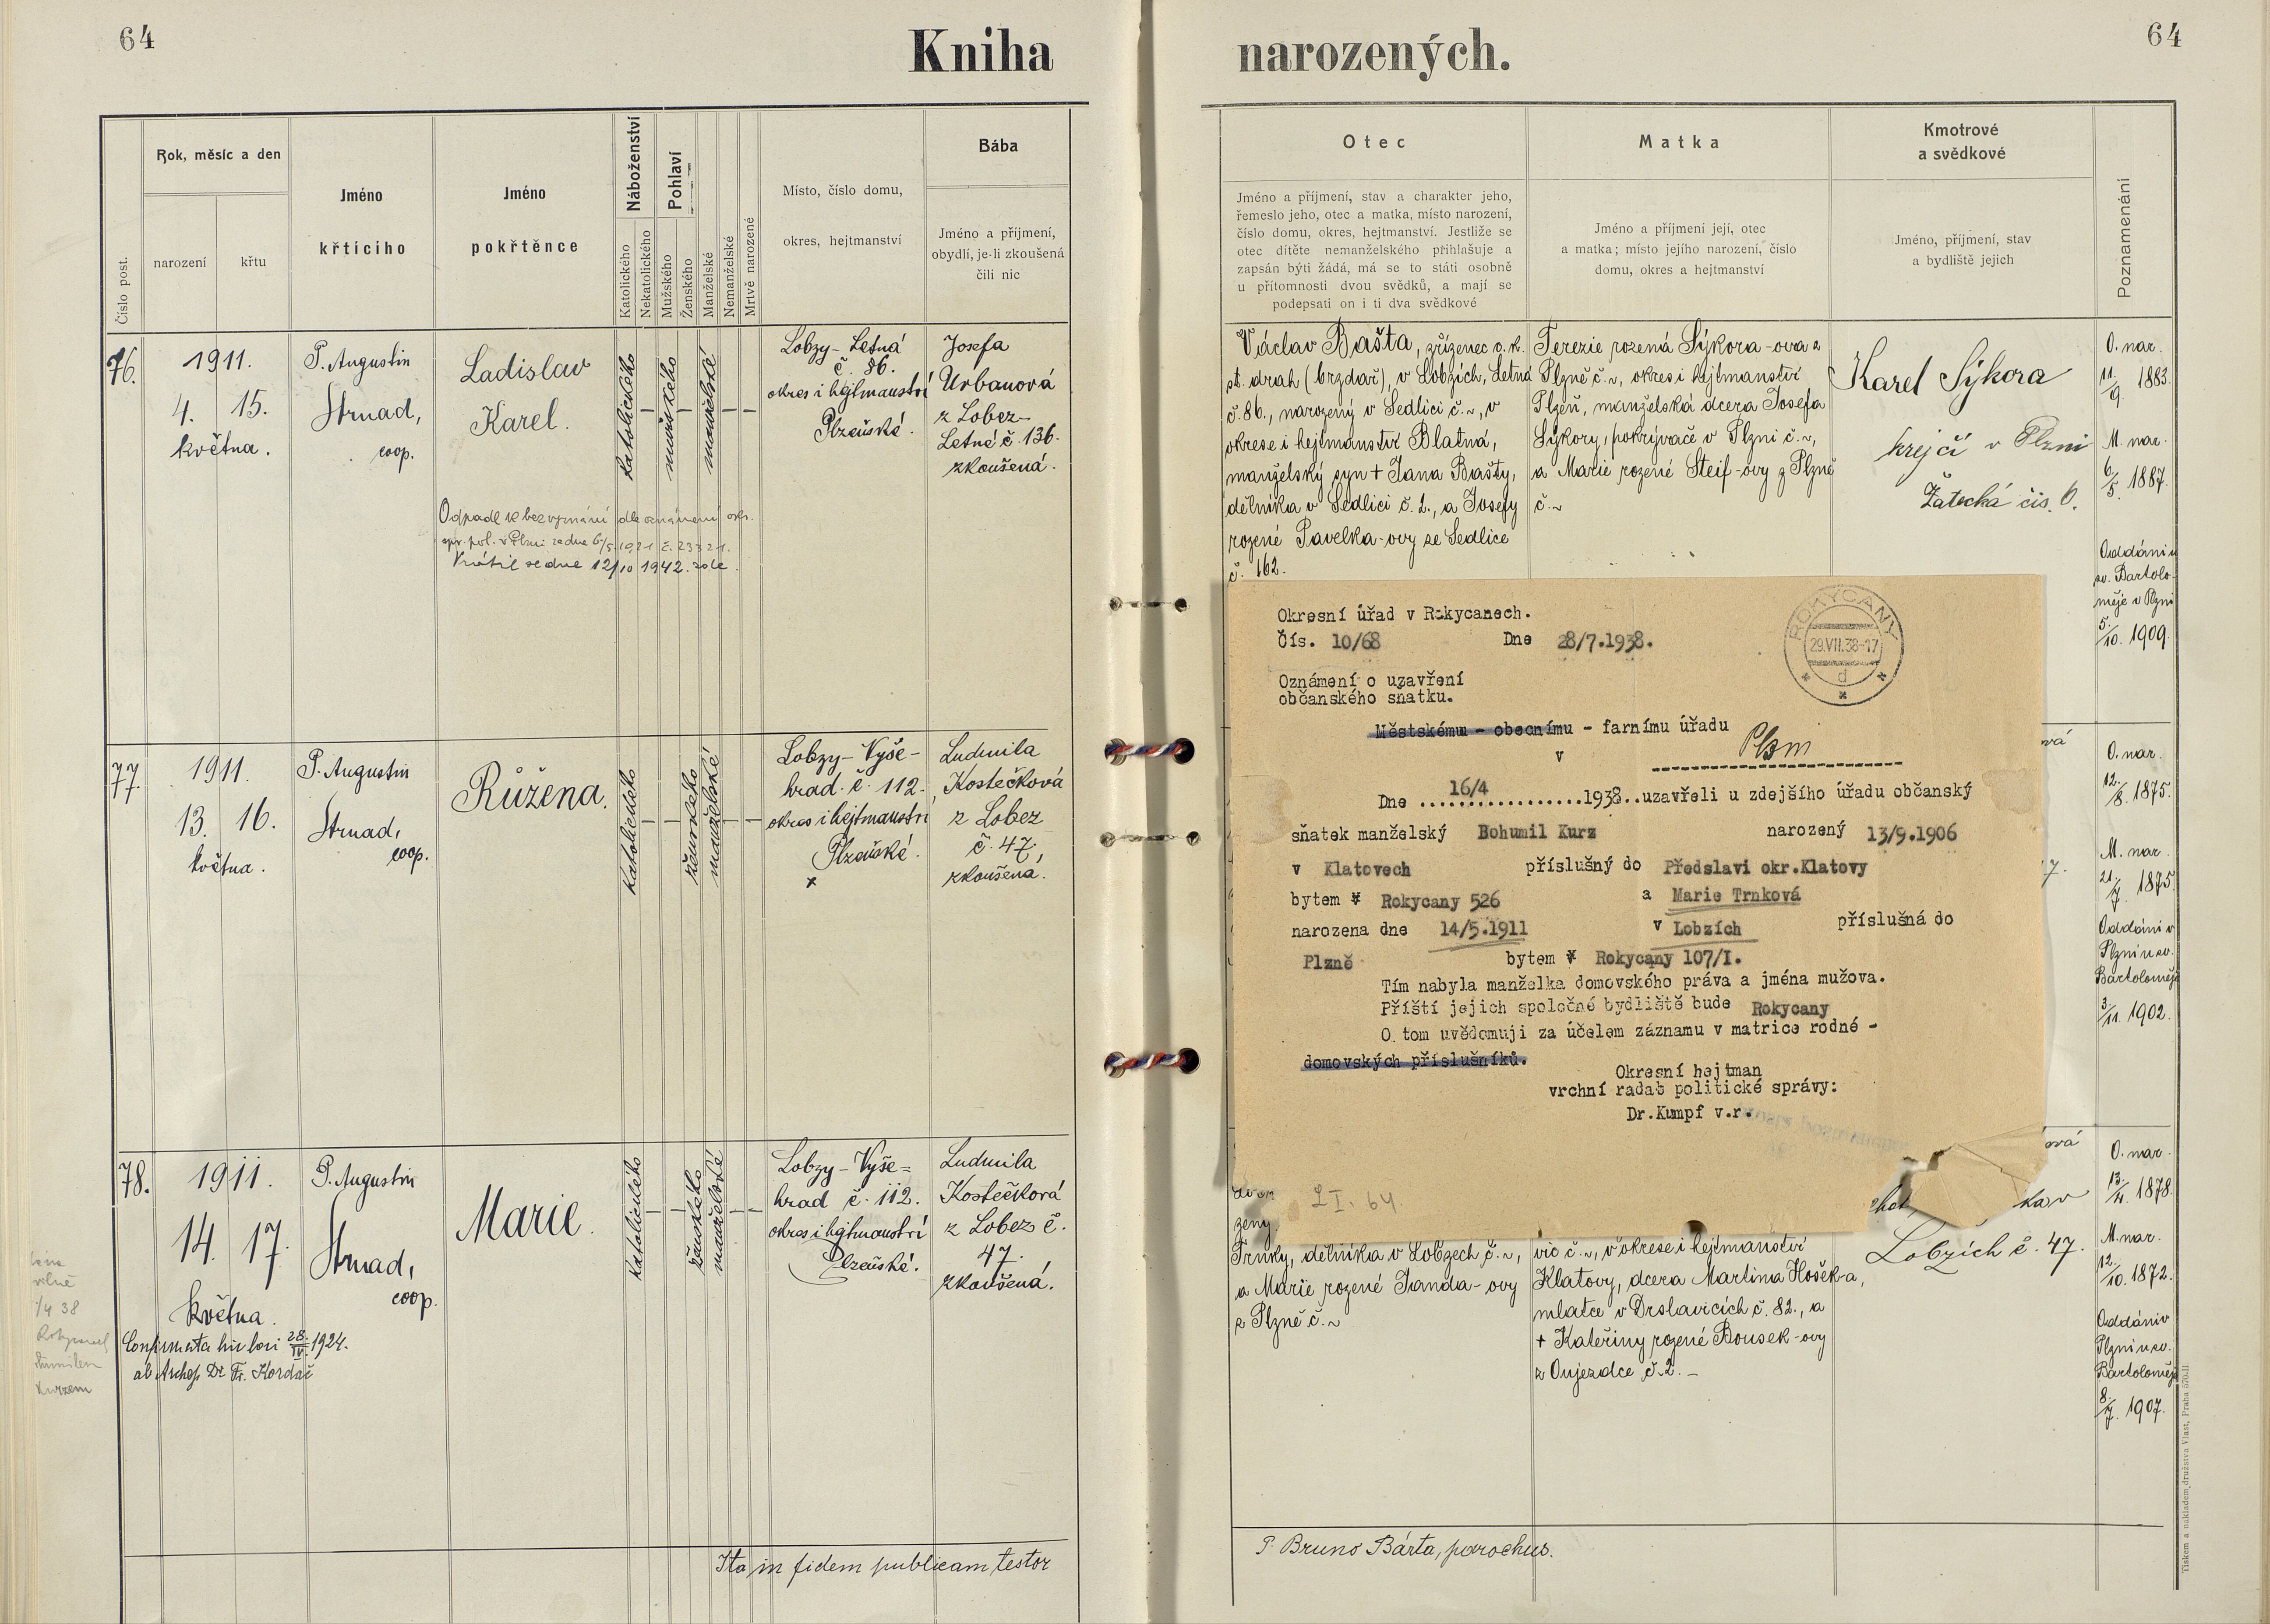 64
Kniha
narozených.
64
Číslo post.
Rok, měsíc a den
narození
křtu
Jméno
křtícího
Jméno
pokřtěnce
Náboženství
Katolického
Nekatolického
Pohlaví
Mužského
Ženského
Manželské
Nemanželské
Mrtvě narozené
Místo, číslo domu,
okres, hejtmanství
Bába
Jméno a příjmení,
obydlí, je-li zkoušená
čili nic
Otec
Jméno a příjmení, stav a charakter jeho,
řemeslo jeho, otec a matka, místo narození,
číslo domu, okres, hejtmanství. Jestliže se
otec dítěte nemanželského přihlašuje a
zapsán býti žádá, má se to státi osobně
u přítomnosti dvou svědků, a mají se
podepsati on i ti dva svědkové
Matka
Jméno a příjmení její, otec
a matka; místo jejího narození, číslo
domu, okres a hejtmanství
Kmotrové
a svědkové
Jméno, příjmení, stav
a bydliště jejich
Poznamenání
76.
1911.
4. 15.
května.
P. Augustin
Strnad,
coop.
Ladislav
Karel.
Odpadl k bezvyznání dle oznámení okr.
spr. pol. v Plzni ze dne 6/5. 1921 č. 23321.
Vrátil se dne 12/10 1942. zde.
katolického
mužského
manželské
Lobzy - Letná
č. 86.
okres i hejtmanství
Plzeňské.
Josefa
Urbanová
z Lobez-
Letné č. 136.
zkoušená.
Václav Bašta, zřízenec c. k.
st. drah (brzdař), v Lobzích, Letná
č. 86., narozený v Sedlici č. ~, v
okrese i hejtmanství Blatná,
manželský syn + Jana Bašty,
dělníka v Sedlici č. 2., a Josefy
rozené Pavelka-ovy ze Sedlice
č. 162.
Terezie rozená Sýkora-ova z
Plzně č. ~, okres i hejtmanství
Plzeň, manželská dcera Josefa
Sýkory, pokrývače v Plzni č. ~,
a Marie rozené Steif-ovy z Plzně
č. ~
Karel Sýkora
krejčí v Plzni
Žatecká čis. 6.
O. nar.
11./9. 1883.
M. nar.
6./5. 1887.
Oddáni u
sv. Bartolo-
měje v Plzni
5./10. 1909.
77.
1911.
13. 16.
května.
P. Augustin
Strnad,
coop.
Růžena.
katolického
ženského
manželské
Lobzy - Vyše-
hrad č. 112.
okres i hejtmanství
Plzeňské.
x
Ludmila
Kostečková
z Lobez
č. 47,
zkoušena.
ová
7.
O. nar.
12./8. 1875.
M. nar.
21./7. 1875.
Oddáni v
Plzni u sv.
Bartoloměje
3./11. 1902.
Okresní úřad v Rokycanech.
Čís. 10/68 Dne 28/7.1938.
ROKYCANY
29.VII.38-17
d
Oznámení o uzavření
občanského sňatku.
Městskému - obecnímu - farnímu úřadu
v Plzni
Dne 16/4 1938..uzavřeli u zdejšího úřadu občanský
sňatek manželský Bohumil Kurz narozený 13/9.1906
v Klatovech příslušný do Předslavi okr.Klatovy
bytem v Rokycany 526 a Marie Trnková
narozena dne 14/5.1911 v Lobzích příslušná do
Plzně bytem v Rokycany 107/I.
Tím nabyla manželka domovského práva a jména mužova.
Příští jejich společné bydliště bude Rokycany
O tom uvědomuji za účelem záznamu v matrice rodné -
domovských příslušníků.
Okresní hejtman
vrchní rada politické správy:
Dr.Kumpf v.r.
LI. 64.
78.
1911.
14. 17.
května.
Confirmata hic loci 28./IV. 1924.
ab Archep. Dr. Fr. Kordač
P. Augustin
Strnad,
coop.
Marie.
katolického
ženského
manželské
Lobzy - Vyše=
hrad č. 112.
okres i hejtmanství
Plzeňské.
Ludmila
Kostečková
z Lobez č.
47.
zkoušená.
zený
Trnky, dělníka v Lobzech č. ~,
a Marie rozené Janda-ovy
z Plzně č. ~
vic č. ~, v okrese i hejtmanství
Klatovy, dcera Martina Hošek-a,
mlatce v Drslavicích č. 82., a
+ Kateřiny rozené Bousek-ovy
z Oujezdce č. 2. -
ová
Lobzích č. 47.
O. nar.
13./4. 1878.
M. nar.
12./10. 1872.
Oddáni v
Plzni u sv.
Bartoloměje
8./7. 1907.
Ita in fidem publicam testor
P. Bruno Bárta, parochus.
Tiskem a nákladem družstva Vlast, Praha 570-II.